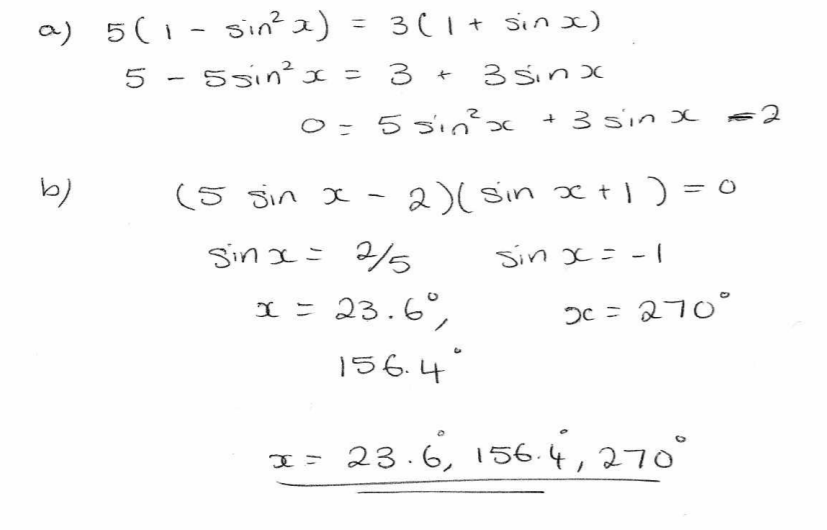 a) 5(1 - sin²x) = 3(1 + sin x)
5 - 5sin²x = 3 + 3sinx
0 = 5 sin²x + 3 sin x - 2
b) (5 sin x - 2)(sin x + 1) = 0
sin x = 2/5 sin x = -1
x = 23.6°, x = 270°
156.4°
x = 23.6°, 156.4°, 270°